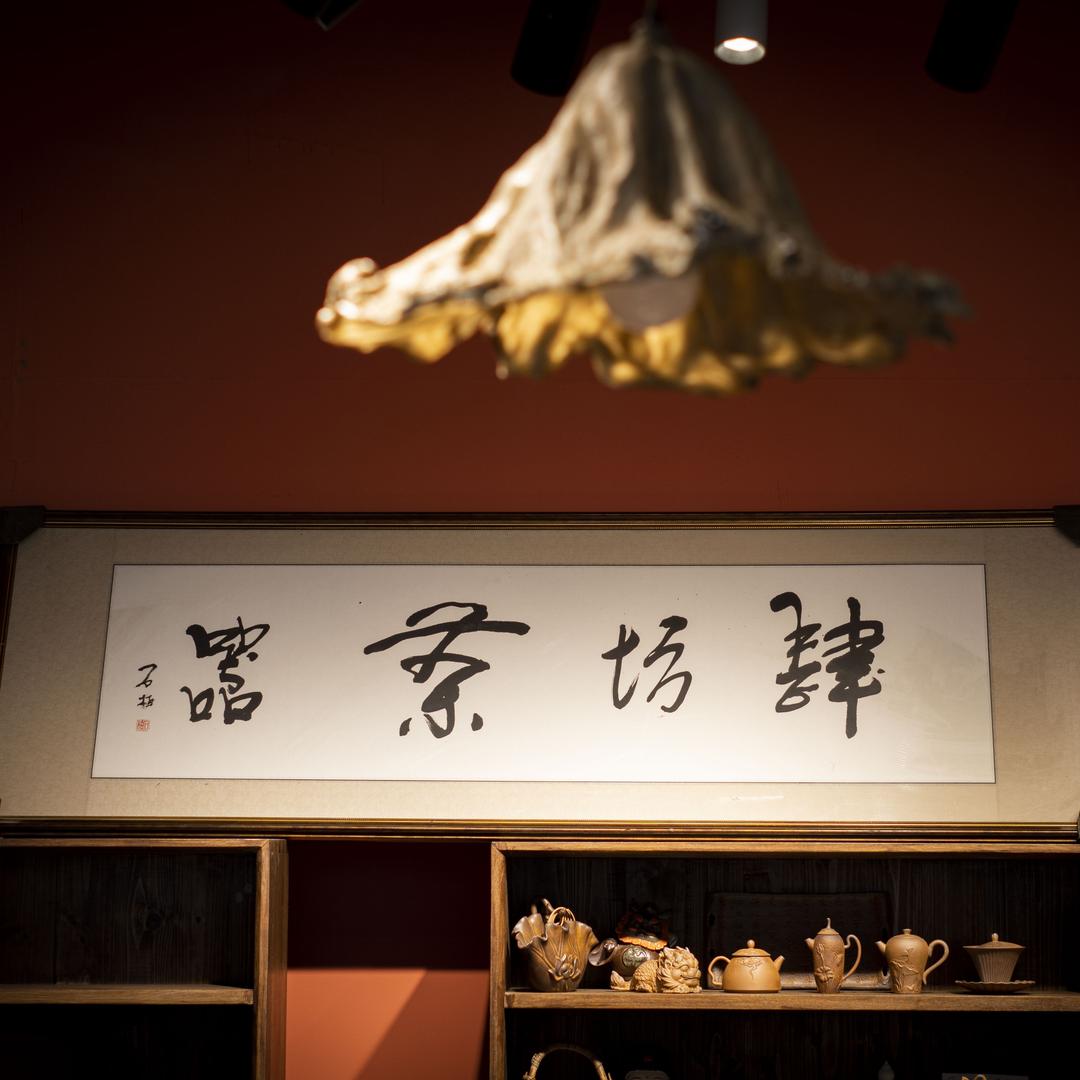 肆坊茶器
石梅